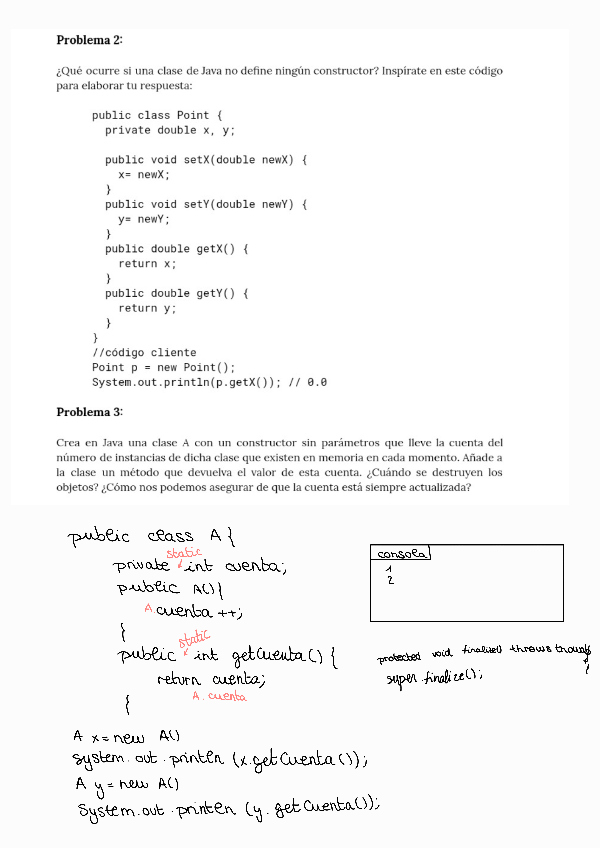 Problema 2:
¿Qué ocurre si una clase de Java no define ningún constructor? Inspírate en este código
para elaborar tu respuesta:
public class Point {
private double x, y;
public void setX(double newX) {
x= newX;
}
public void setY(double newY) {
y= newY;
}
public double getX() {
return x;
}
public double getY() {
return y;
}
}
//código cliente
Point p = new Point();
System.out.println(p.getX()); // 0.0
Problema 3:
Crea en Java una clase A con un constructor sin parámetros que lleve la cuenta del
número de instancias de dicha clase que existen en memoria en cada momento. Añade a
la clase un método que devuelva el valor de esta cuenta. ¿Cuándo se destruyen los
objetos? ¿Cómo nos podemos asegurar de que la cuenta está siempre actualizada?
public class A {
static
private int cuenta;
public A(){
A.cuenta ++;
}
static
public int getCuenta() {
return cuenta;
A. cuenta
}
A x = new A()
system.out.println (x.getCuenta());
A y = new A()
System.out.println (y.getCuenta());
consola
1
2
protected void throws
{
super.finalize();